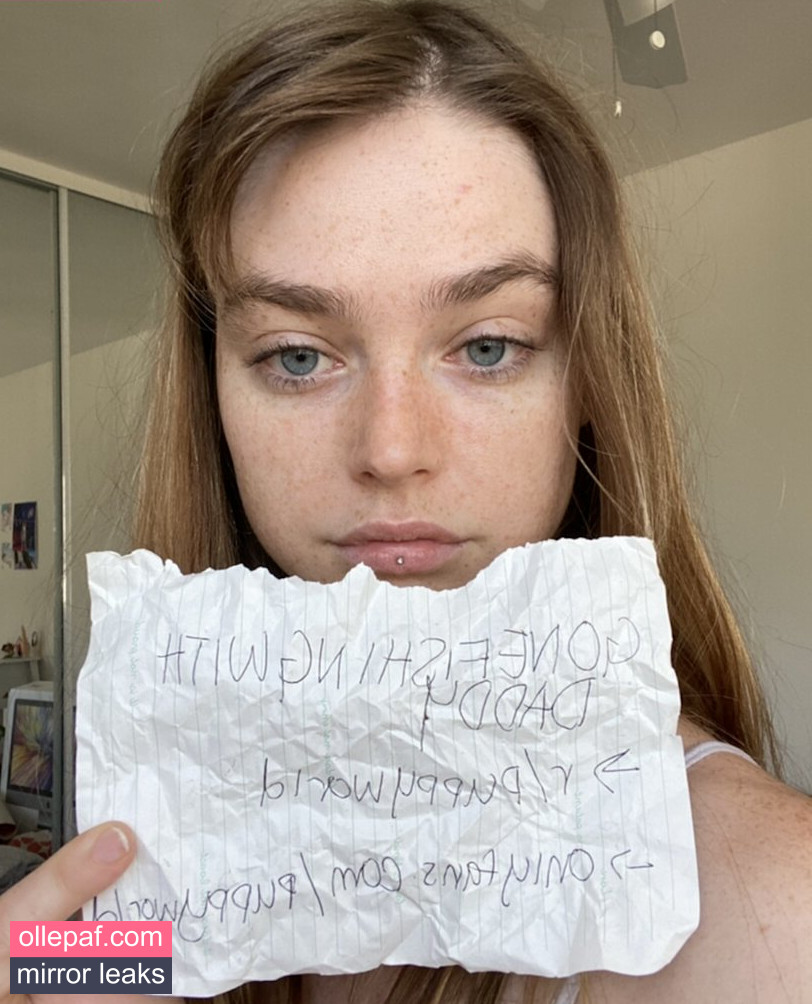 GONEFISHINGWITH
DADDY
→ r/puppyworld
→ onlyfans.com/puppyworld
ollepaf.com
mirror leaks